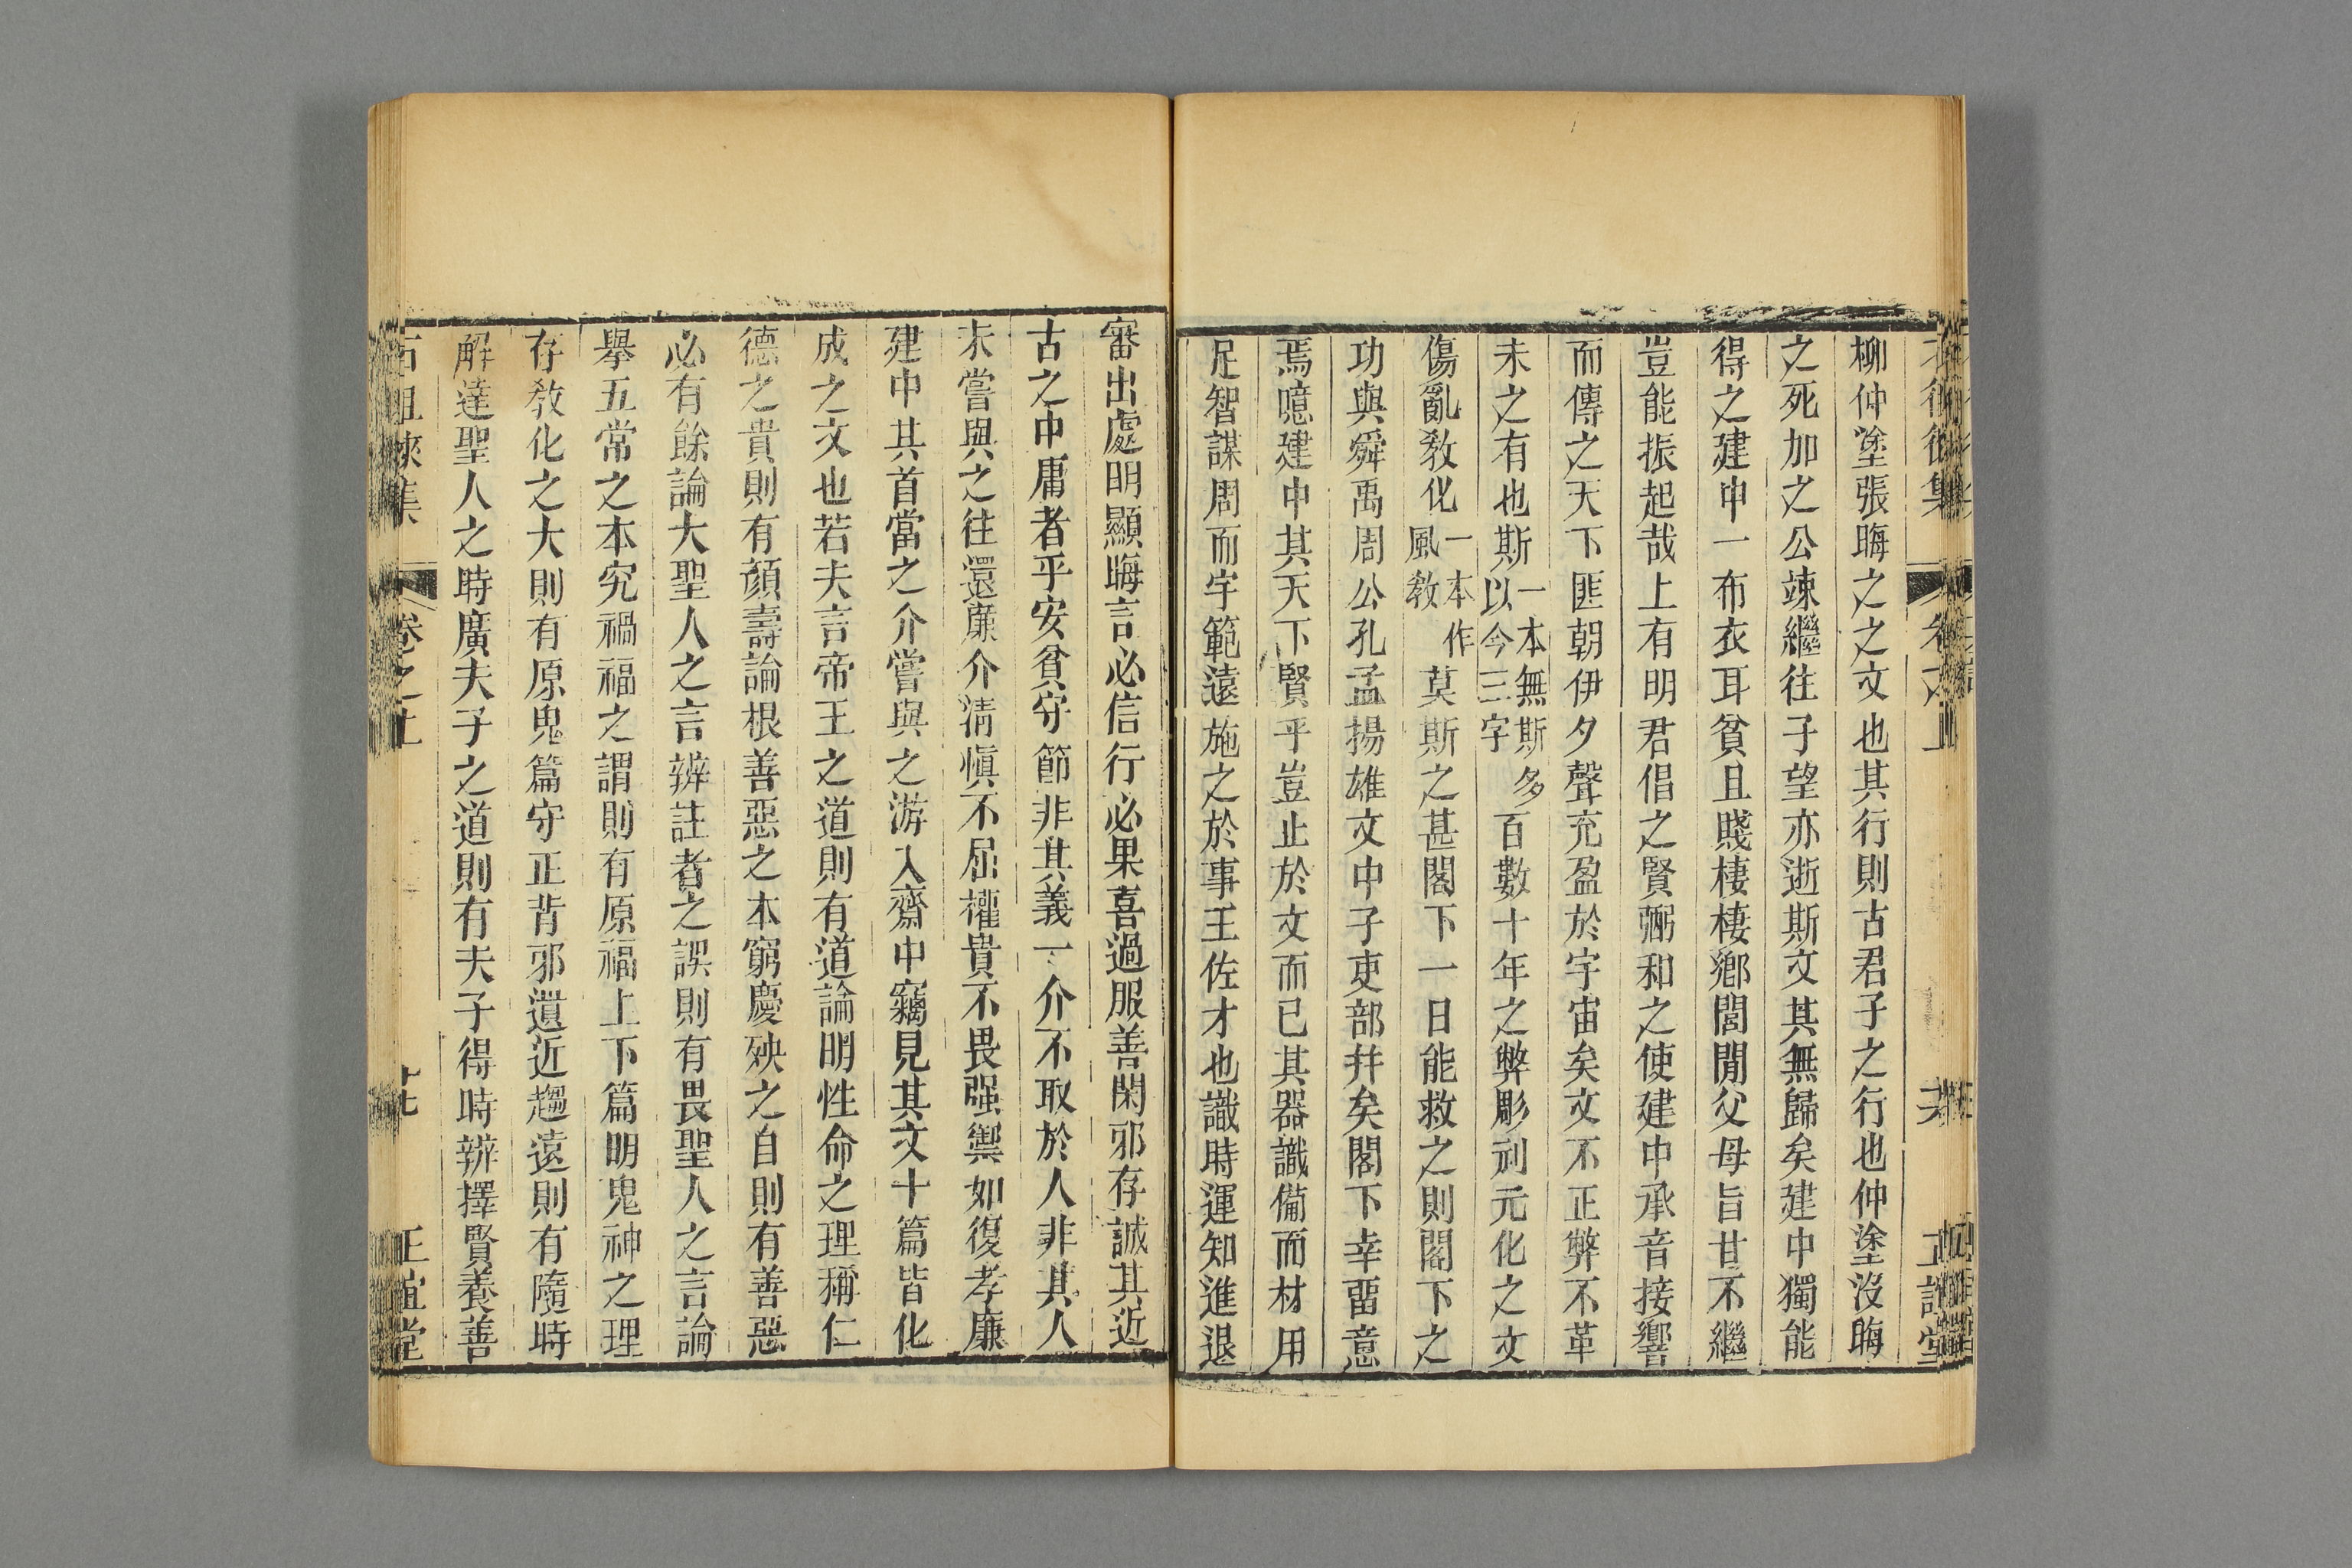 柳仲塗張晦之之文也其行則古君子之行也仲塗沒晦
之死加之公竦繼往子望亦逝斯文其無歸矣建中獨能
得之建中一布衣耳貧且賤棲棲鄉閭閒父母旨甘不繼
豈能振起哉上有明君倡之賢弼和之使建中承音接響
而傳之天下匪朝伊夕聲充盈於宇宙矣文不正弊不革
未之有也斯一本無斯多以今三字百數十年之弊彫刓元化之文
傷亂敎化一本作風敎莫斯之甚閣下一日能救之則閣下之
功與舜禹周公孔孟揚雄文中子吏部幷矣閣下幸畱意
焉噫建中其天下賢乎豈止於文而已其器識備而材用
足智謀周而宇範遠施之於事王佐才也識時運知進退
審出處明顯晦言必信行必果喜過服善閑邪存誠其近
古之中庸者乎安貧守節非其義一介不取於人非其人
未嘗與之往還廉介淸愼不屈權貴不畏强禦如復孝廉
建中其首當之介嘗與之游入齋中竊見其文十篇皆化
成之文也若夫言帝王之道則有道論明性命之理稱仁
德之貴則有顏壽論根善惡之本窮慶殃之自則有善惡
必有餘論大聖人之言辨註者之誤則有畏聖人之言論
舉五常之本究禍福之謂則有原福上下篇明鬼神之理
存敎化之大則有原鬼篇守正背邪遺近趨遠則有隨時
解達聖人之時廣夫子之道則有夫子得時辨擇賢養善
卷之上
正誼堂